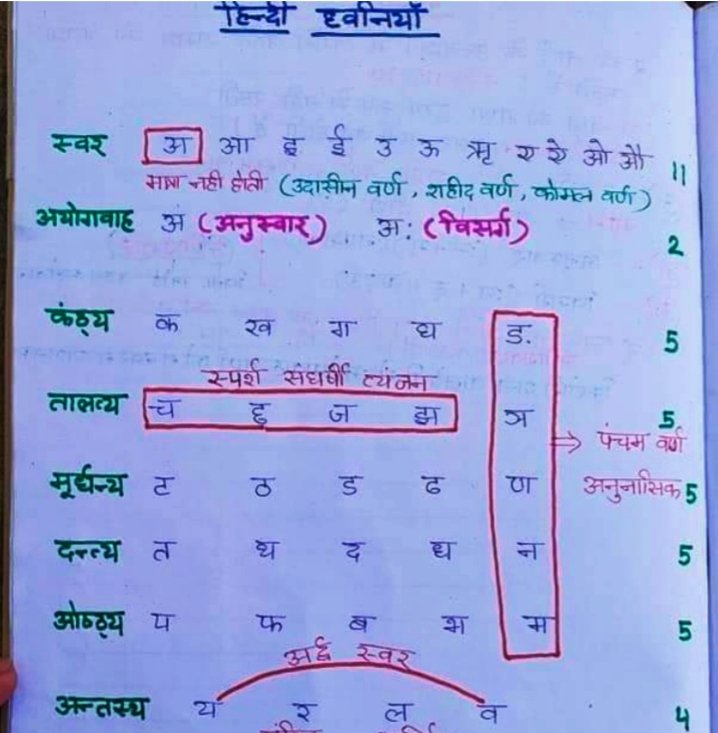 हिन्दी ध्वनियाँ
स्वर अ आ इ ई उ ऊ ऋ ए ऐ ओ औ 11
मात्रा नही होती (उदासीन वर्ण, शहीद वर्ण, कोमल वर्ण)
अयोगवाह अं (अनुस्वार) अः (विसर्ग) 2
कंठ्य क ख ग घ ङ 5
स्पर्श संघर्षी व्यंजन
तालव्य च छ ज झ ञ 5
पंचम वर्ण
मूर्धन्य ट ठ ड ढ ण अनुनासिक 5
दन्त्य त थ द ध न 5
ओष्ठ्य प फ ब भ म 5
अर्द्ध स्वर
अन्तस्थ य र ल व 4